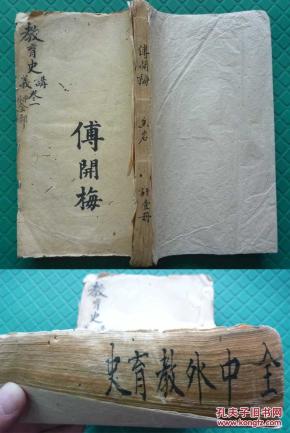 教育史講
義卷一
傅開梅
傅開梅
計壹冊
教育史
全中外教育史
孔夫子旧书网